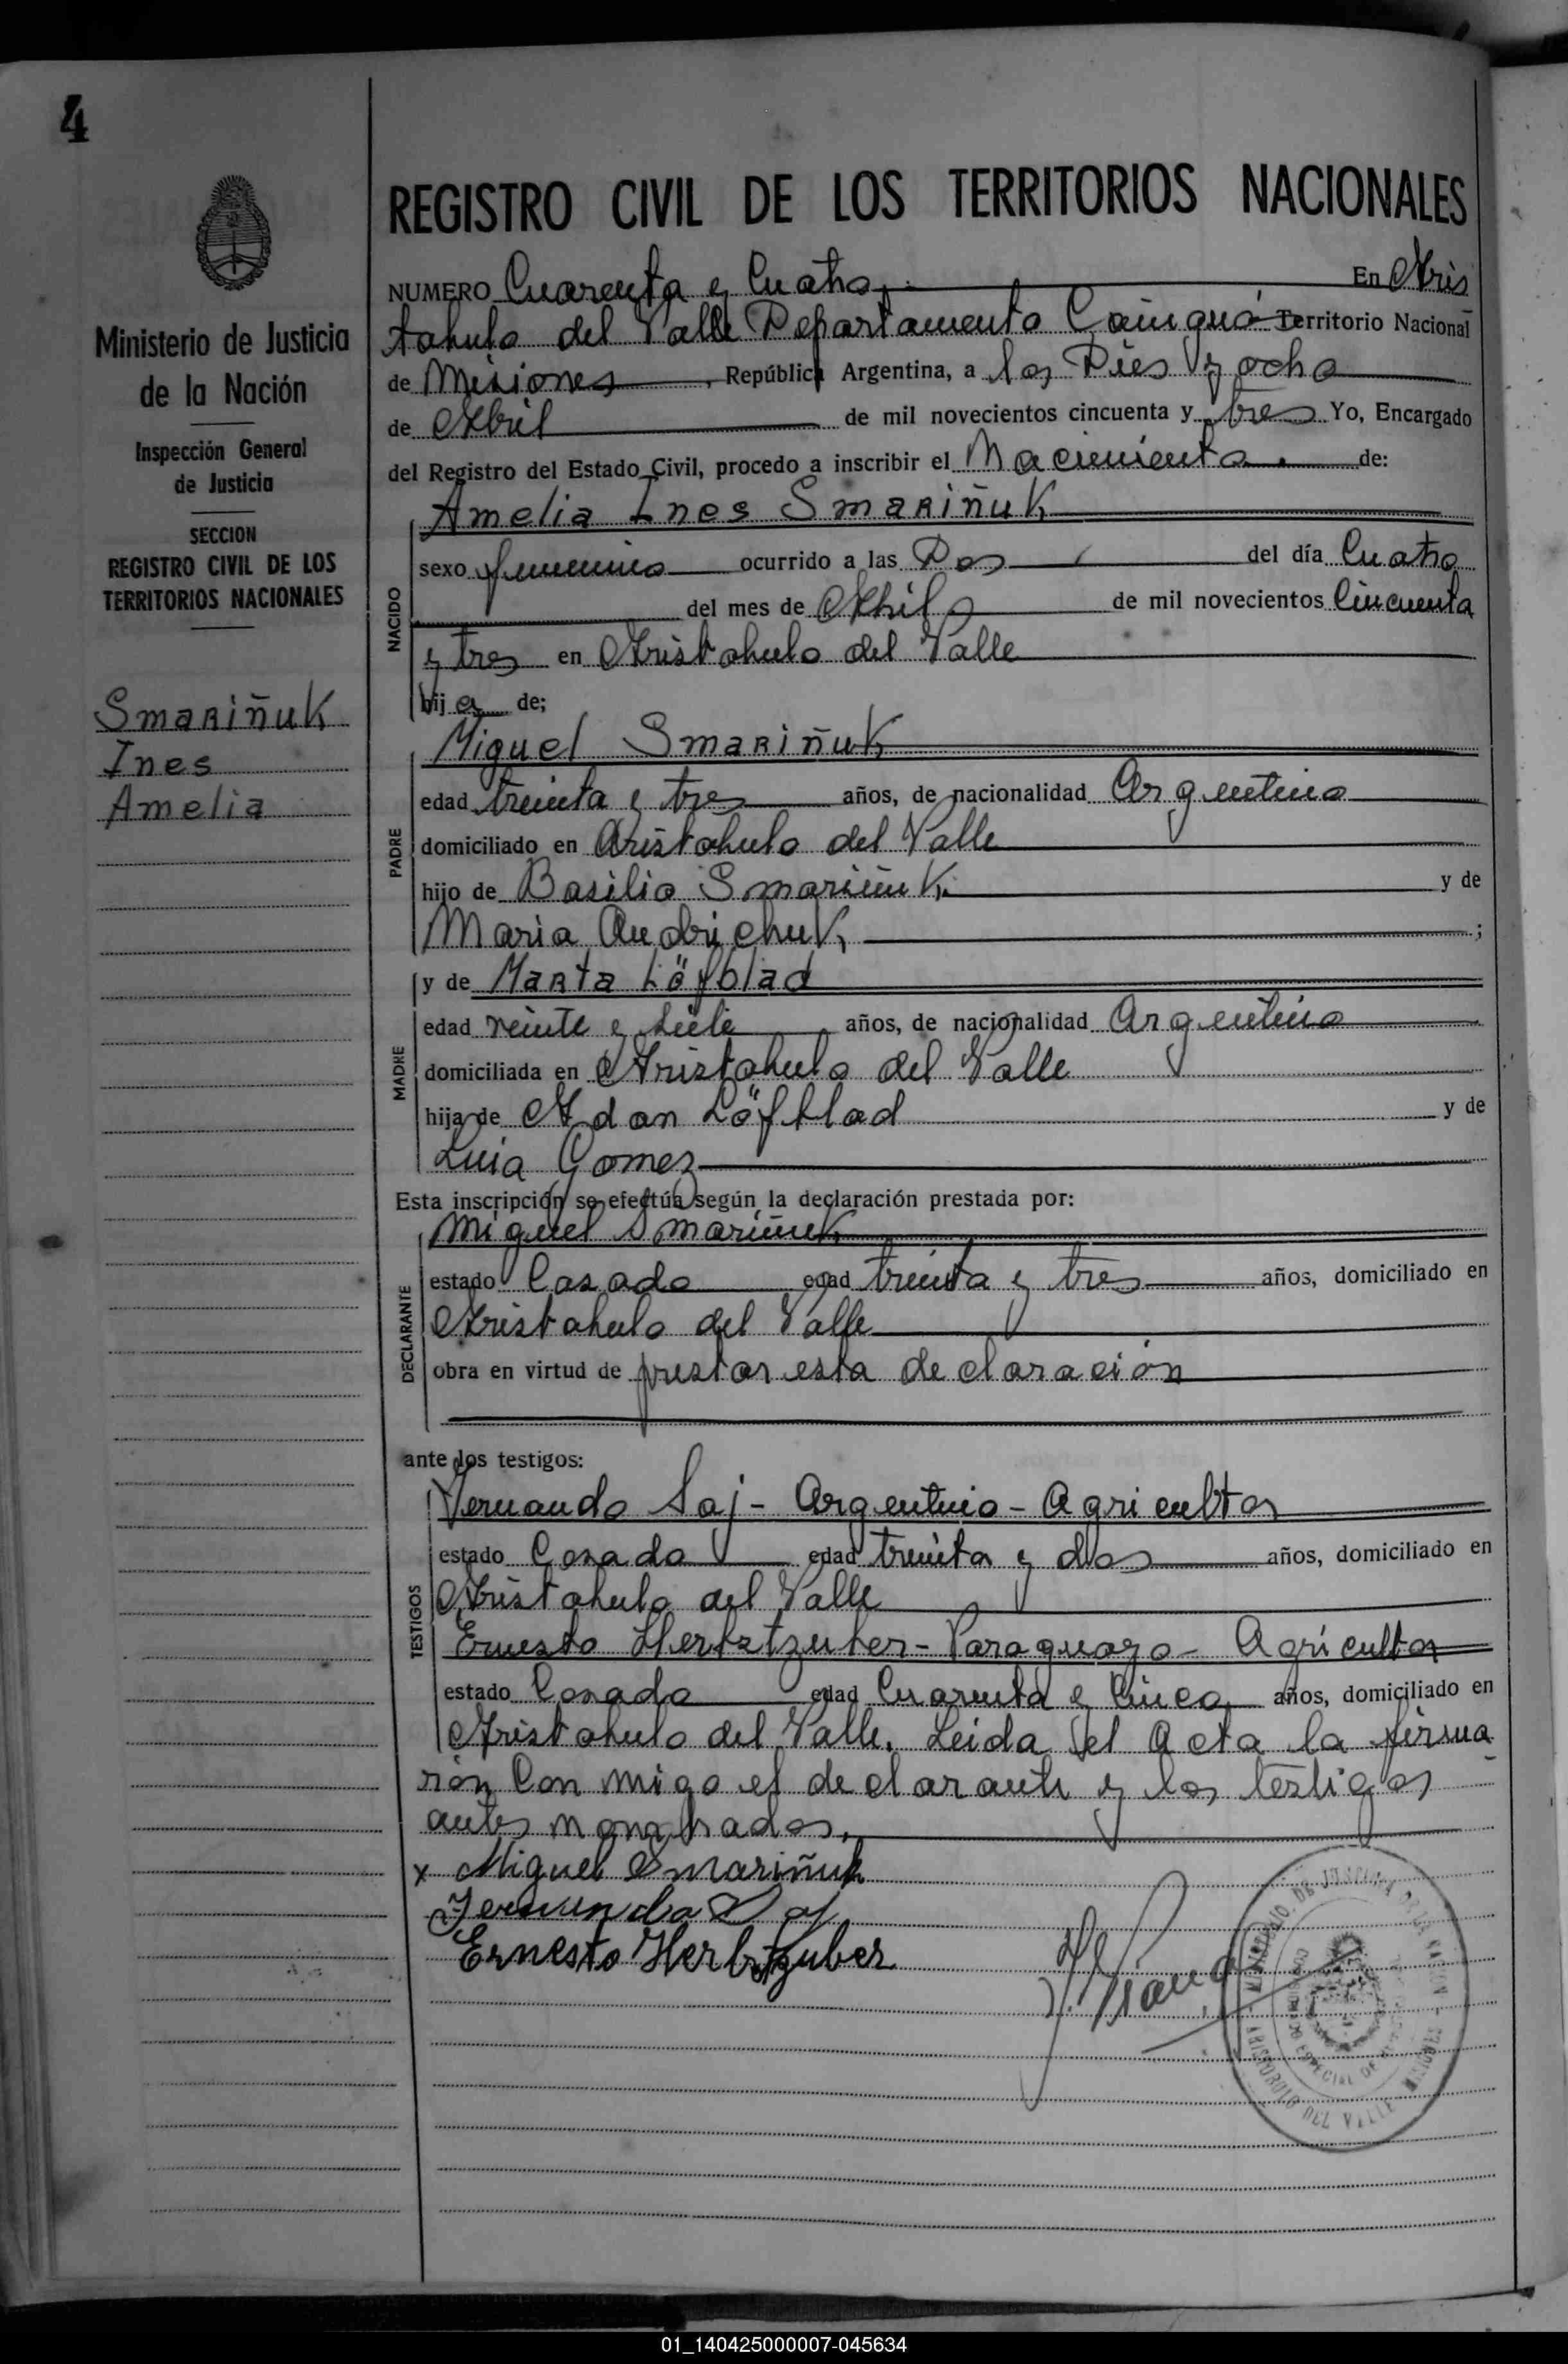 4
REGISTRO CIVIL DE LOS TERRITORIOS NACIONALES
Ministerio de Justicia
de la Nación
Inspección General
de Justicia
SECCION
REGISTRO CIVIL DE LOS
TERRITORIOS NACIONALES
Smariñuk
Ines
Amelia
NUMERO Cuarenta y Cuatro. En Aris
tobulo del Valle Departamento Cainguá Territorio Nacional
de Misiones, República Argentina, a los Dies y ocho
de Abril de mil novecientos cincuenta y tres Yo, Encargado
del Registro del Estado Civil, procedo a inscribir el Nacimiento. de:
NACIDO
Amelia Ines Smariñuk
sexo femenino ocurrido a las Dos del día Cuatro
del mes de Abril de mil novecientos Cincuenta
y tres en Aristobulo del Valle
hija de;
PADRE
Miguel Smariñuk
edad treinta y tres años, de nacionalidad Argentino
domiciliado en Aristobulo del Valle
hijo de Basilio Smariñuk. y de
Maria Andrichuk ;
MADRE
y de Marta Löfblad
edad veinte y siete años, de nacionalidad Argentino
domiciliada en Aristobulo del Valle
hija de Adan Löfblad y de
Luia Gomez
Esta inscripción se efectúa según la declaración prestada por:
DECLARANTE
Miguel Smariñuk
estado Casado edad treinta y tres años, domiciliado en
Aristobulo del Valle
obra en virtud de prestar esta declaración
ante los testigos:
TESTIGOS
Fernando Saj - Argentino - Agricultor
estado Casado edad treinta y dos años, domiciliado en
Aristobulo del Valle
Ernesto - Paraguayo - Agricultor
estado Casado edad Cuarenta y Cinco años, domiciliado en
Aristobulo del Valle. Leida el Acta la firma
rón Con migo el declarante y los testigos
antes
x Miguel Smariñuk
Fernando Saj
Ernesto
MINISTERIO DE JUSTICIA DE LA NACION
ARISTOBULO DEL VALLE MISIONES
01_140425000007-045634